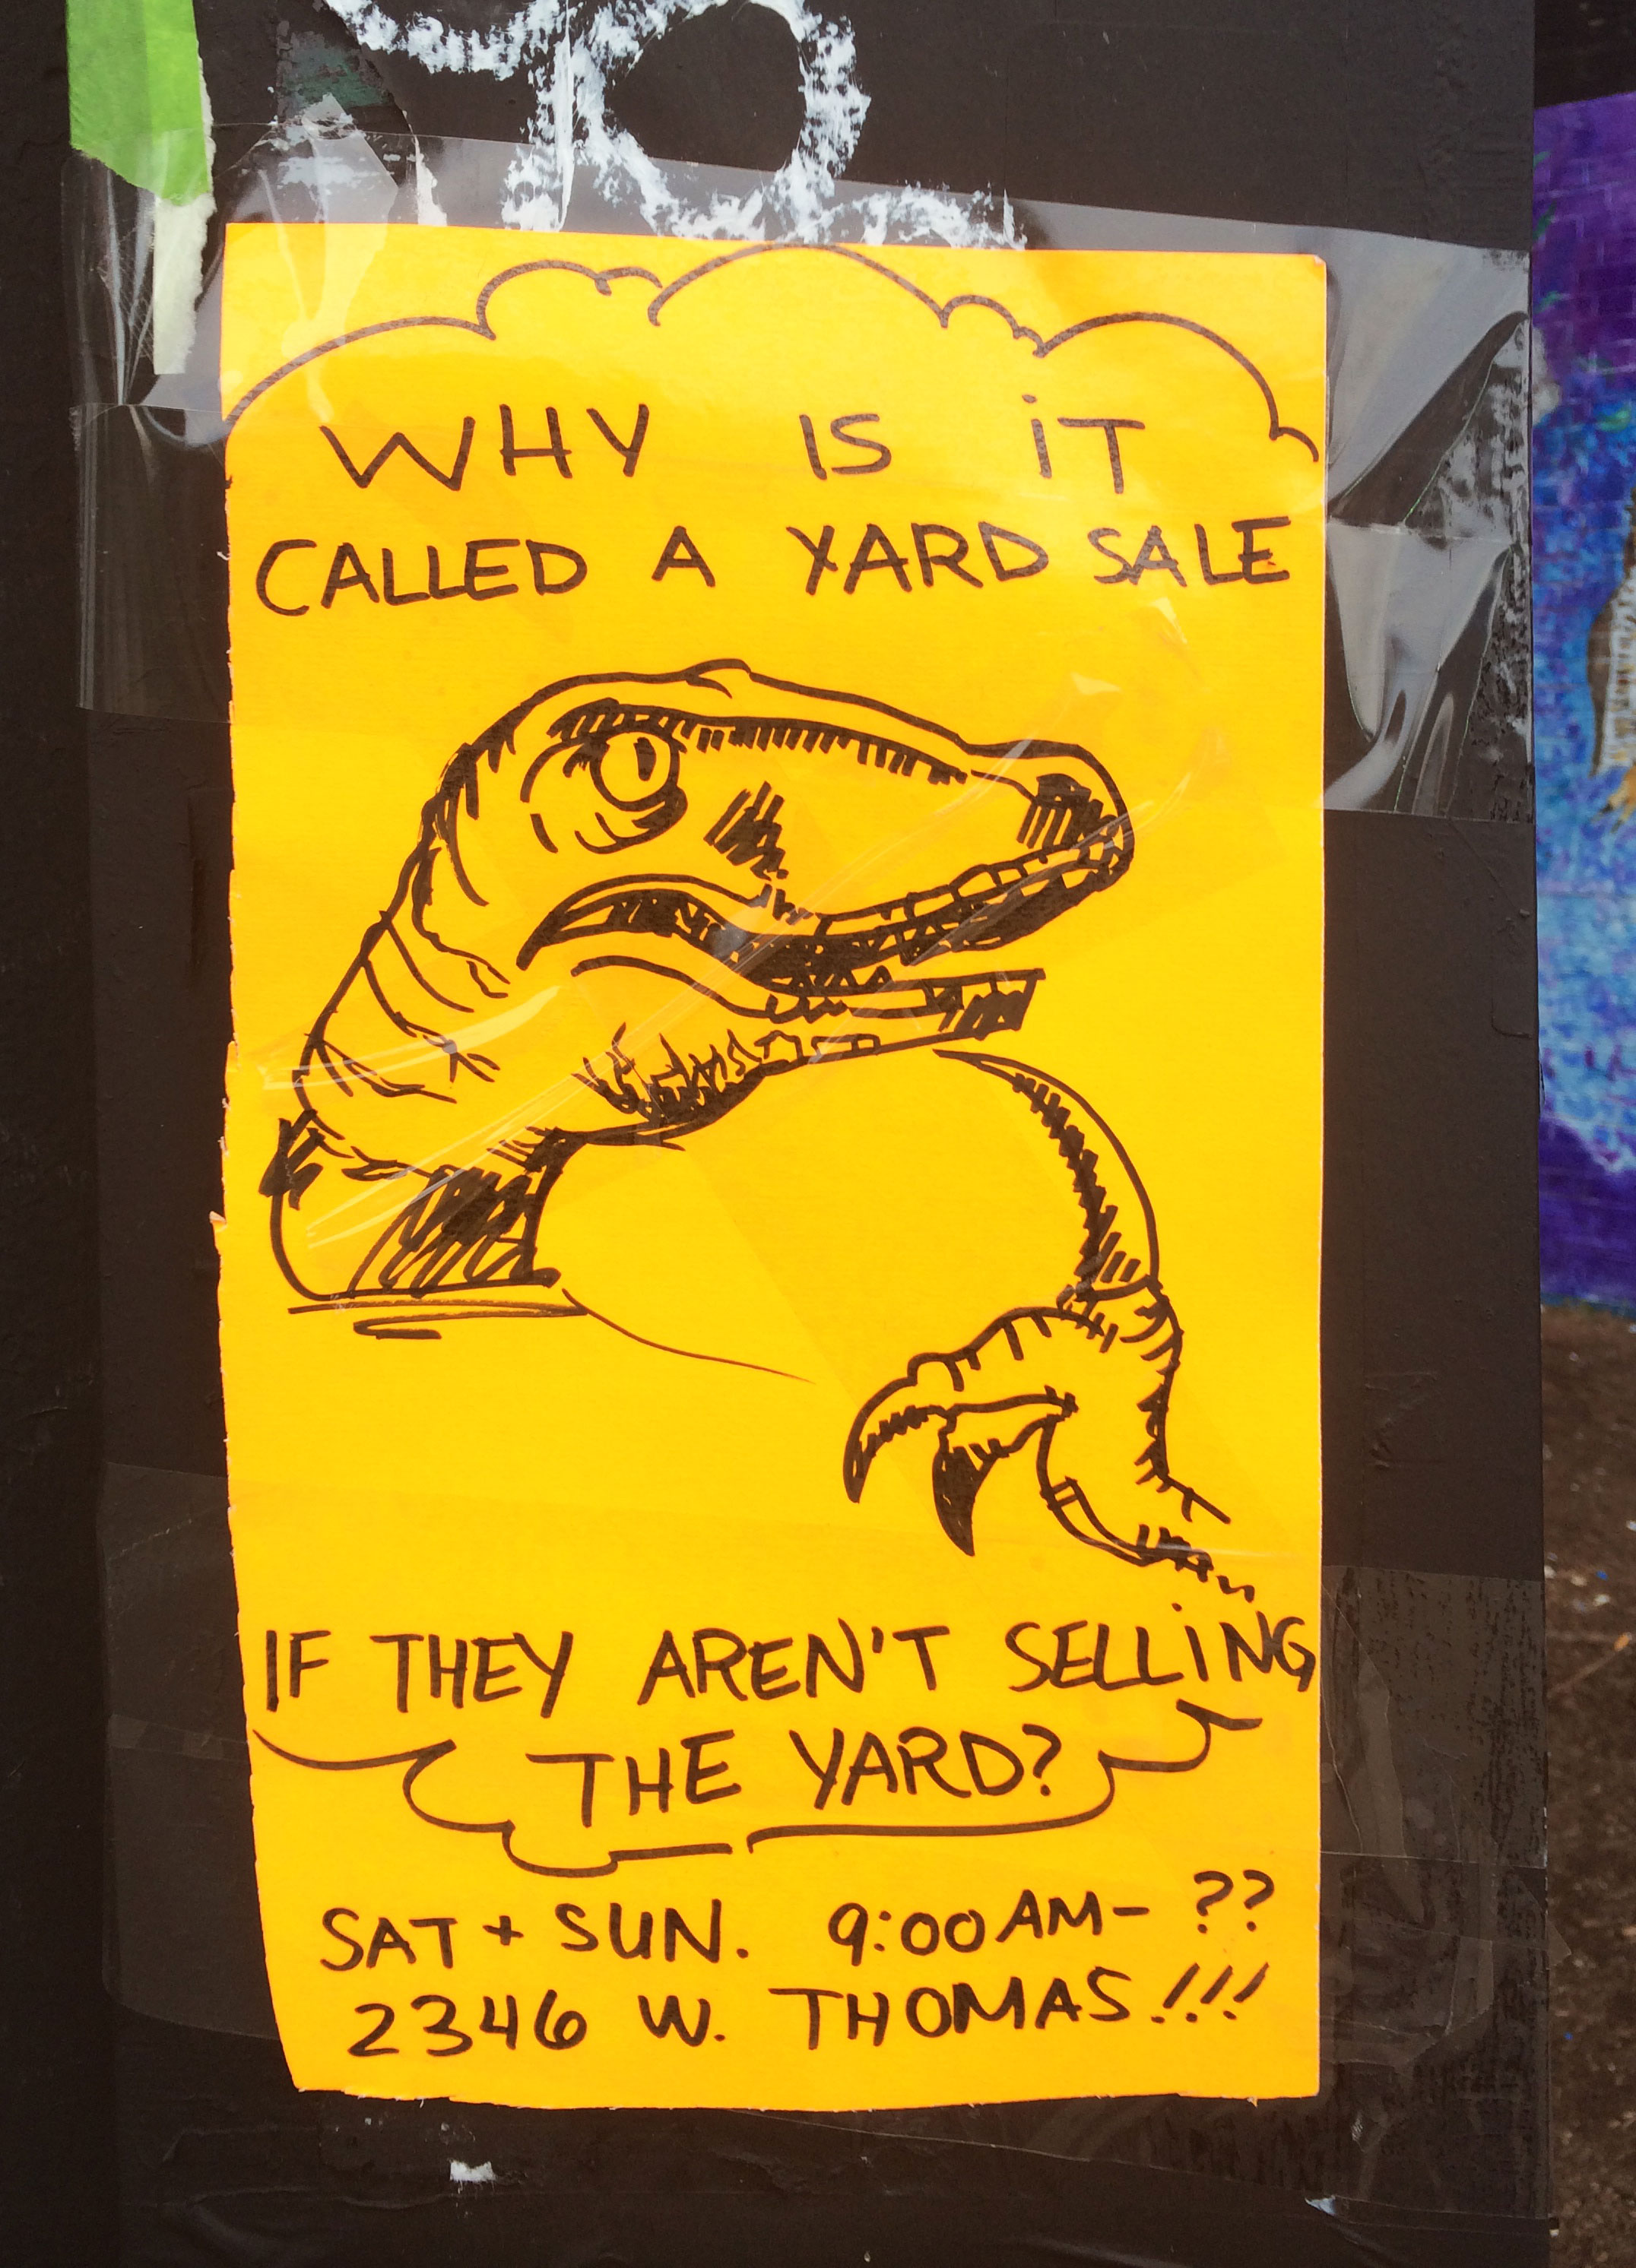 WHY IS iT
CALLED A YARD SALE
IF THEY AREN'T SELLiNG
THE YARD?
SAT + SUN. 9:00 AM - ??
2346 W. THOMAS!!!